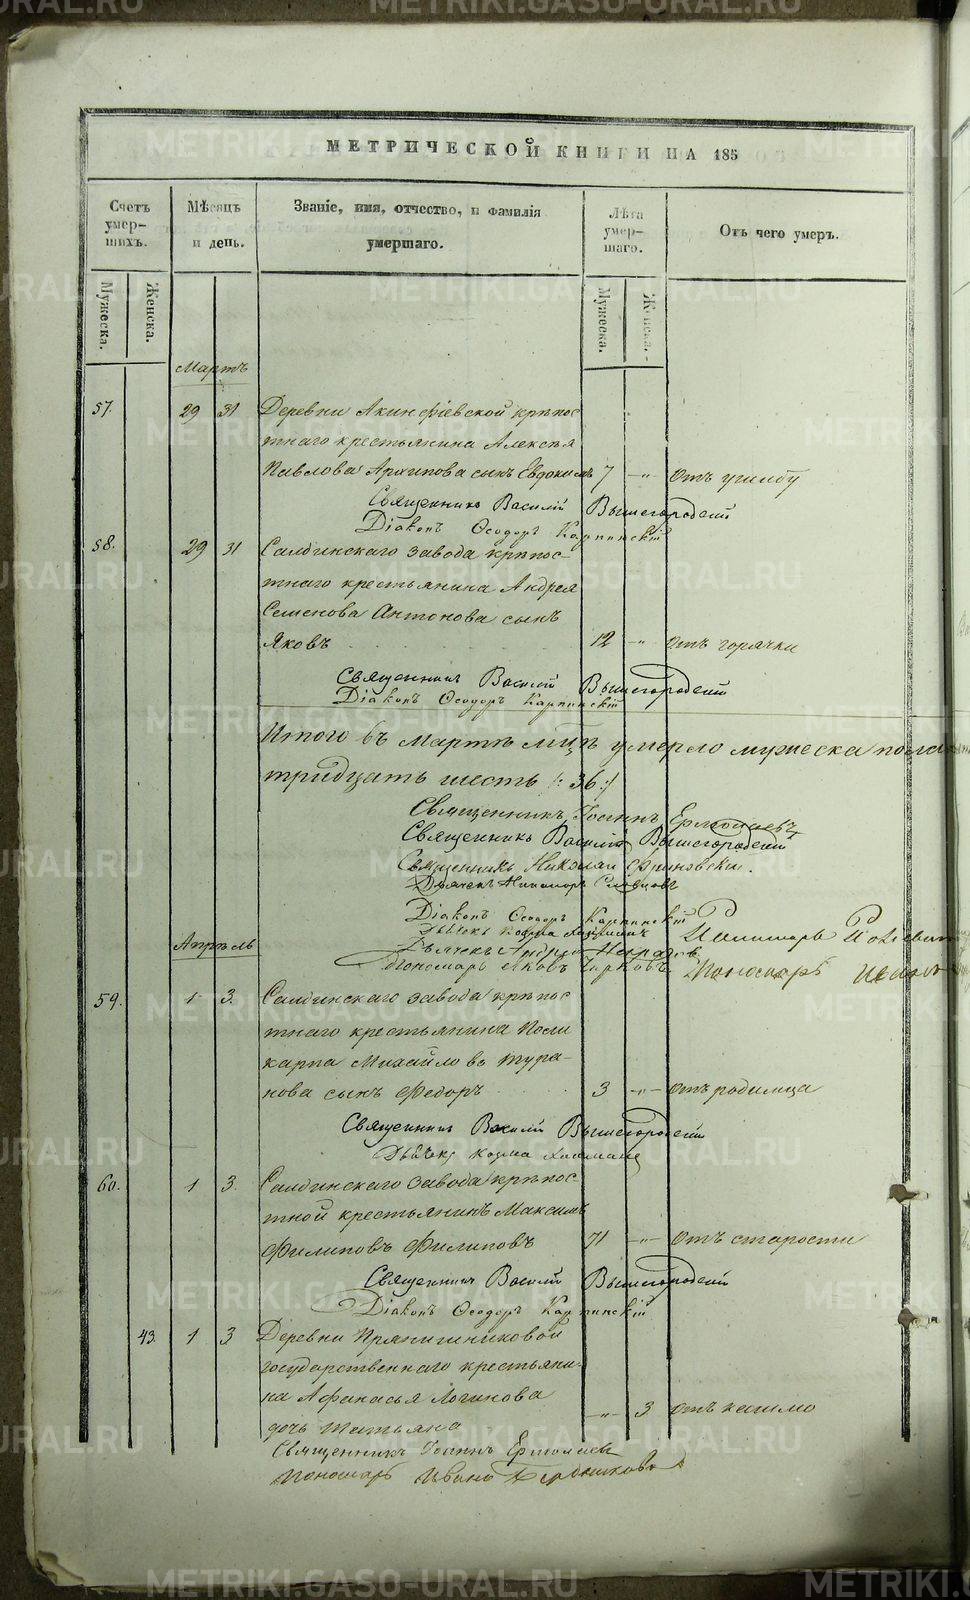 МЕТРИЧЕСКОЙ КНИГИ НА 185
Счетъ умер-шихъ.
Мѣсяцъ и день.
Званіе, имя, отчество, и фамилія умершаго.
Лѣта умер-шаго.
Отъ чего умеръ.
Мужеска.
Женска.
Мужеска.
Женска.
Мартъ
57. 29 31 Деревни Акинфіевской крѣпос
тнаго крестьянина Алексѣя
Павлова Архипова сынъ Евдокимъ 7 -"- Отъ ушибу
Священникъ Василій Вышегородскій
Діаконъ Ѳеодоръ Карпинскій
58. 29 31 Салдинскаго завода крѣпос-
тнаго крестьянина Андрея
Семенова Антонова сынъ
Яковъ 12 -"- Отъ горячки
Священникъ Василій Вышегородскій
Діаконъ Ѳеодоръ Карпинскій
Итого въ Мартѣ мцѣ умерло мужеска пола
тридцать шесть /: 36 :/
Священникъ Іоаннъ Ермолаевъ
Священникъ Василій Вышегородскій
Священникъ Николай
Діаконъ Ѳеодоръ Карпинскій
Дьячекъ Козма
Дьячекъ Андрей
Пономарь Яковъ
Пономарь
Апрѣль
59. 1 3. Салдинскаго завода крѣпос
тнаго крестьянина Поли
карпа Михайлова Тура-
нова сынъ Федоръ 3 -"- Отъ родимца
Священникъ Василій Вышегородскій
Дьячекъ Козма
60. 1 3. Салдинскаго завода крѣпос
тной крестьянинъ Максимъ
Филиповъ Филиповъ 71 -"- Отъ старости
Священникъ Василій Вышегородскій
Діаконъ Ѳеодоръ Карпинскій
43. 1 3 Деревни Прянишниковой
государственнаго крестьяни-
на Афанасья Логинова
дочь Татьяна -"- 3 Отъ кашлю
Священникъ Іоаннъ Ермолаевъ
Пономарь Иванъ
METRIKI.GASO-URAL.RU